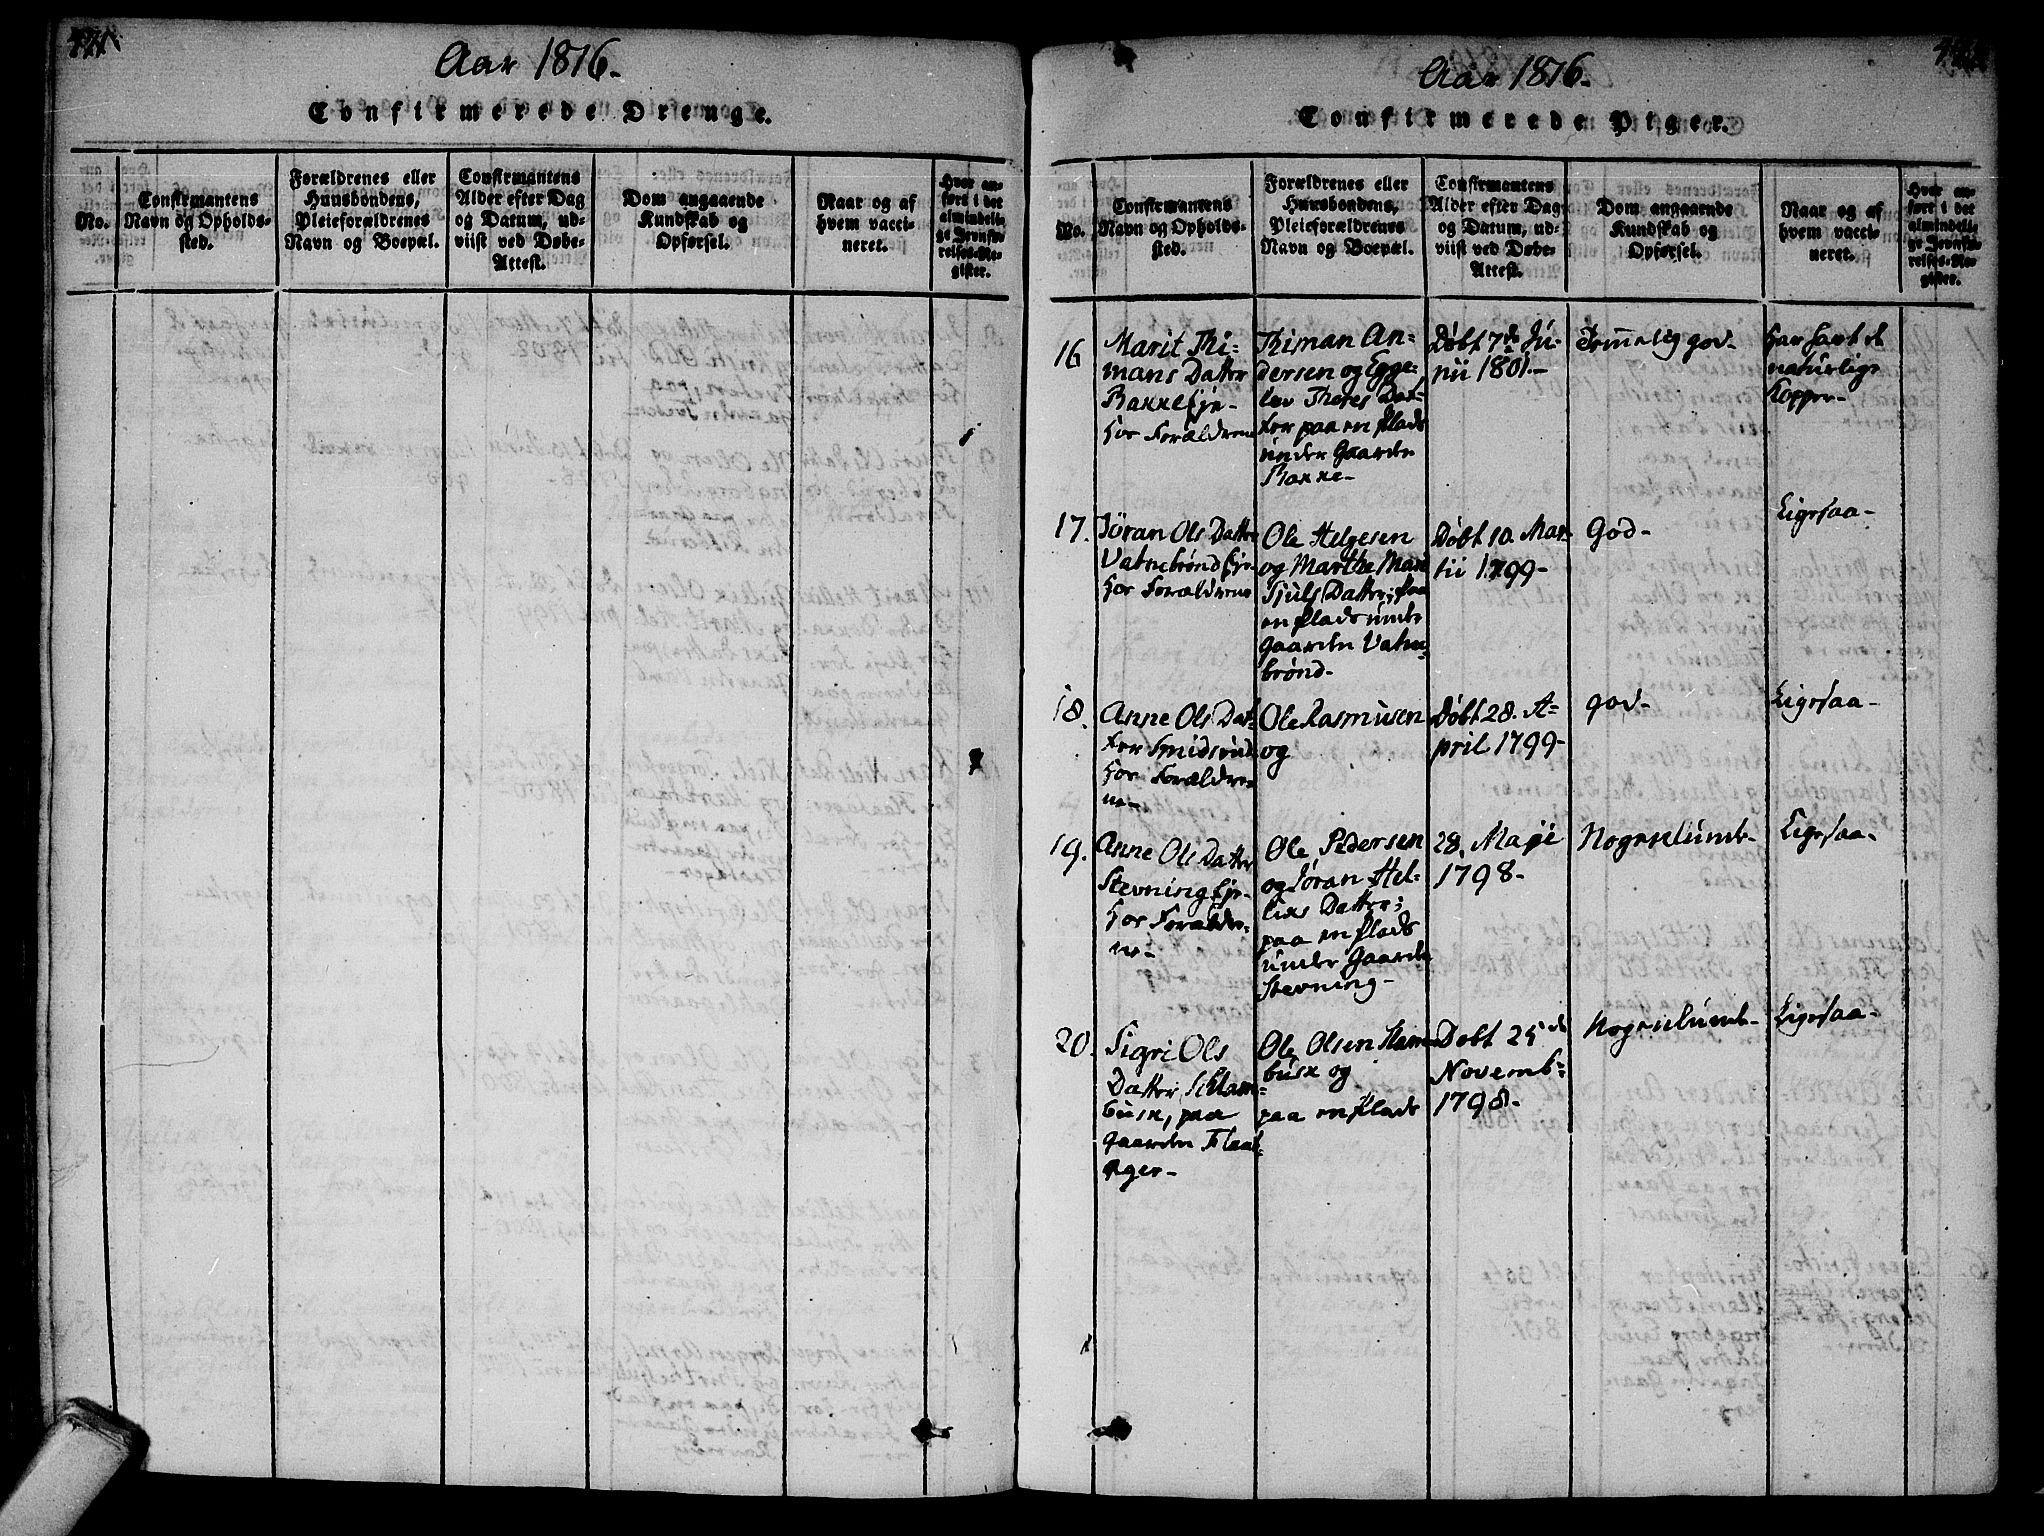 Aar 1816.
Confirmerede Drenge.
No.
Confirmantens
Navn og Opholds-
sted.
Forældrenes eller
Huusbondens,
Pleieforældrenes
Navn og Boepæl.
Confirmantens
Alder efter Dag
og Datum, ud-
viist ved Døbe-
Attest.
Dom angaaende
Kundskab og
Opførsel.
Naar og af
hvem vacci-
neret.
Hvor an-
ført i det
almindeli-
ge Jevnfø-
relses-Re-
gister.
Aar 1816.
Confirmerede Piger.
No.
Confirmantens
Navn og Opholds-
sted.
Forældrenes eller
Huusbondens,
Pleieforældrenes
Navn og Boepæl.
Confirmantens
Alder efter Dag
og Datum, ud-
viist ved Døbe-
Attest.
Dom angaaende
Kundskab og
Opførsel.
Naar og af
hvem vacci-
neret.
Hvor an-
ført i det
almindeli-
ge Jevnfø-
relses-Re-
gister.
16
Marit Thi-
mans Datter
Bakke Eje-
hos Forældrene
Thiman An-
dersen og Egge-
lev Thores Dat-
ter paa en Plads
under Gaarden
Bakke-
Døbt 7de Ju-
nii 1801.-
Temmelig god-
Har havt de
naturlige
Kopper-
17.
Jöran Ols Datter
Vatnebrönd Eje-
hos Forældrene
Ole Helgesen
og Marthe Mari
Tjuls Datter, paa
en Plads under
Gaarden Vatne-
brönd-
Døbt 10. Mar-
tii 1799-
God-
Ligesaa-
18.
Anne Ols Dat-
ter Smidsrud
hos Forældre-
ne-
Ole Rasmusen
og
Døbt 28. A-
pril 1799-
god-
Ligesaa-
19.
Anne Ols Datter
Stevning Eje-
hos Forældre-
ne-
Ole Pedersen
og Jöran Hel-
liks Datter;
paa en Plads
under Gaarden
Stevning-
28. Maji
1798-
Nogenlunde-
Ligesaa-
20.
Sigri Ols
Datter Schlam-
busk, paa
Gaarden Flaat-
ager-
Ole Olsen
busk og
paa en Plads
Døbt 25de
Novemb-
1798-
Nogenlunde-
Ligesaa-